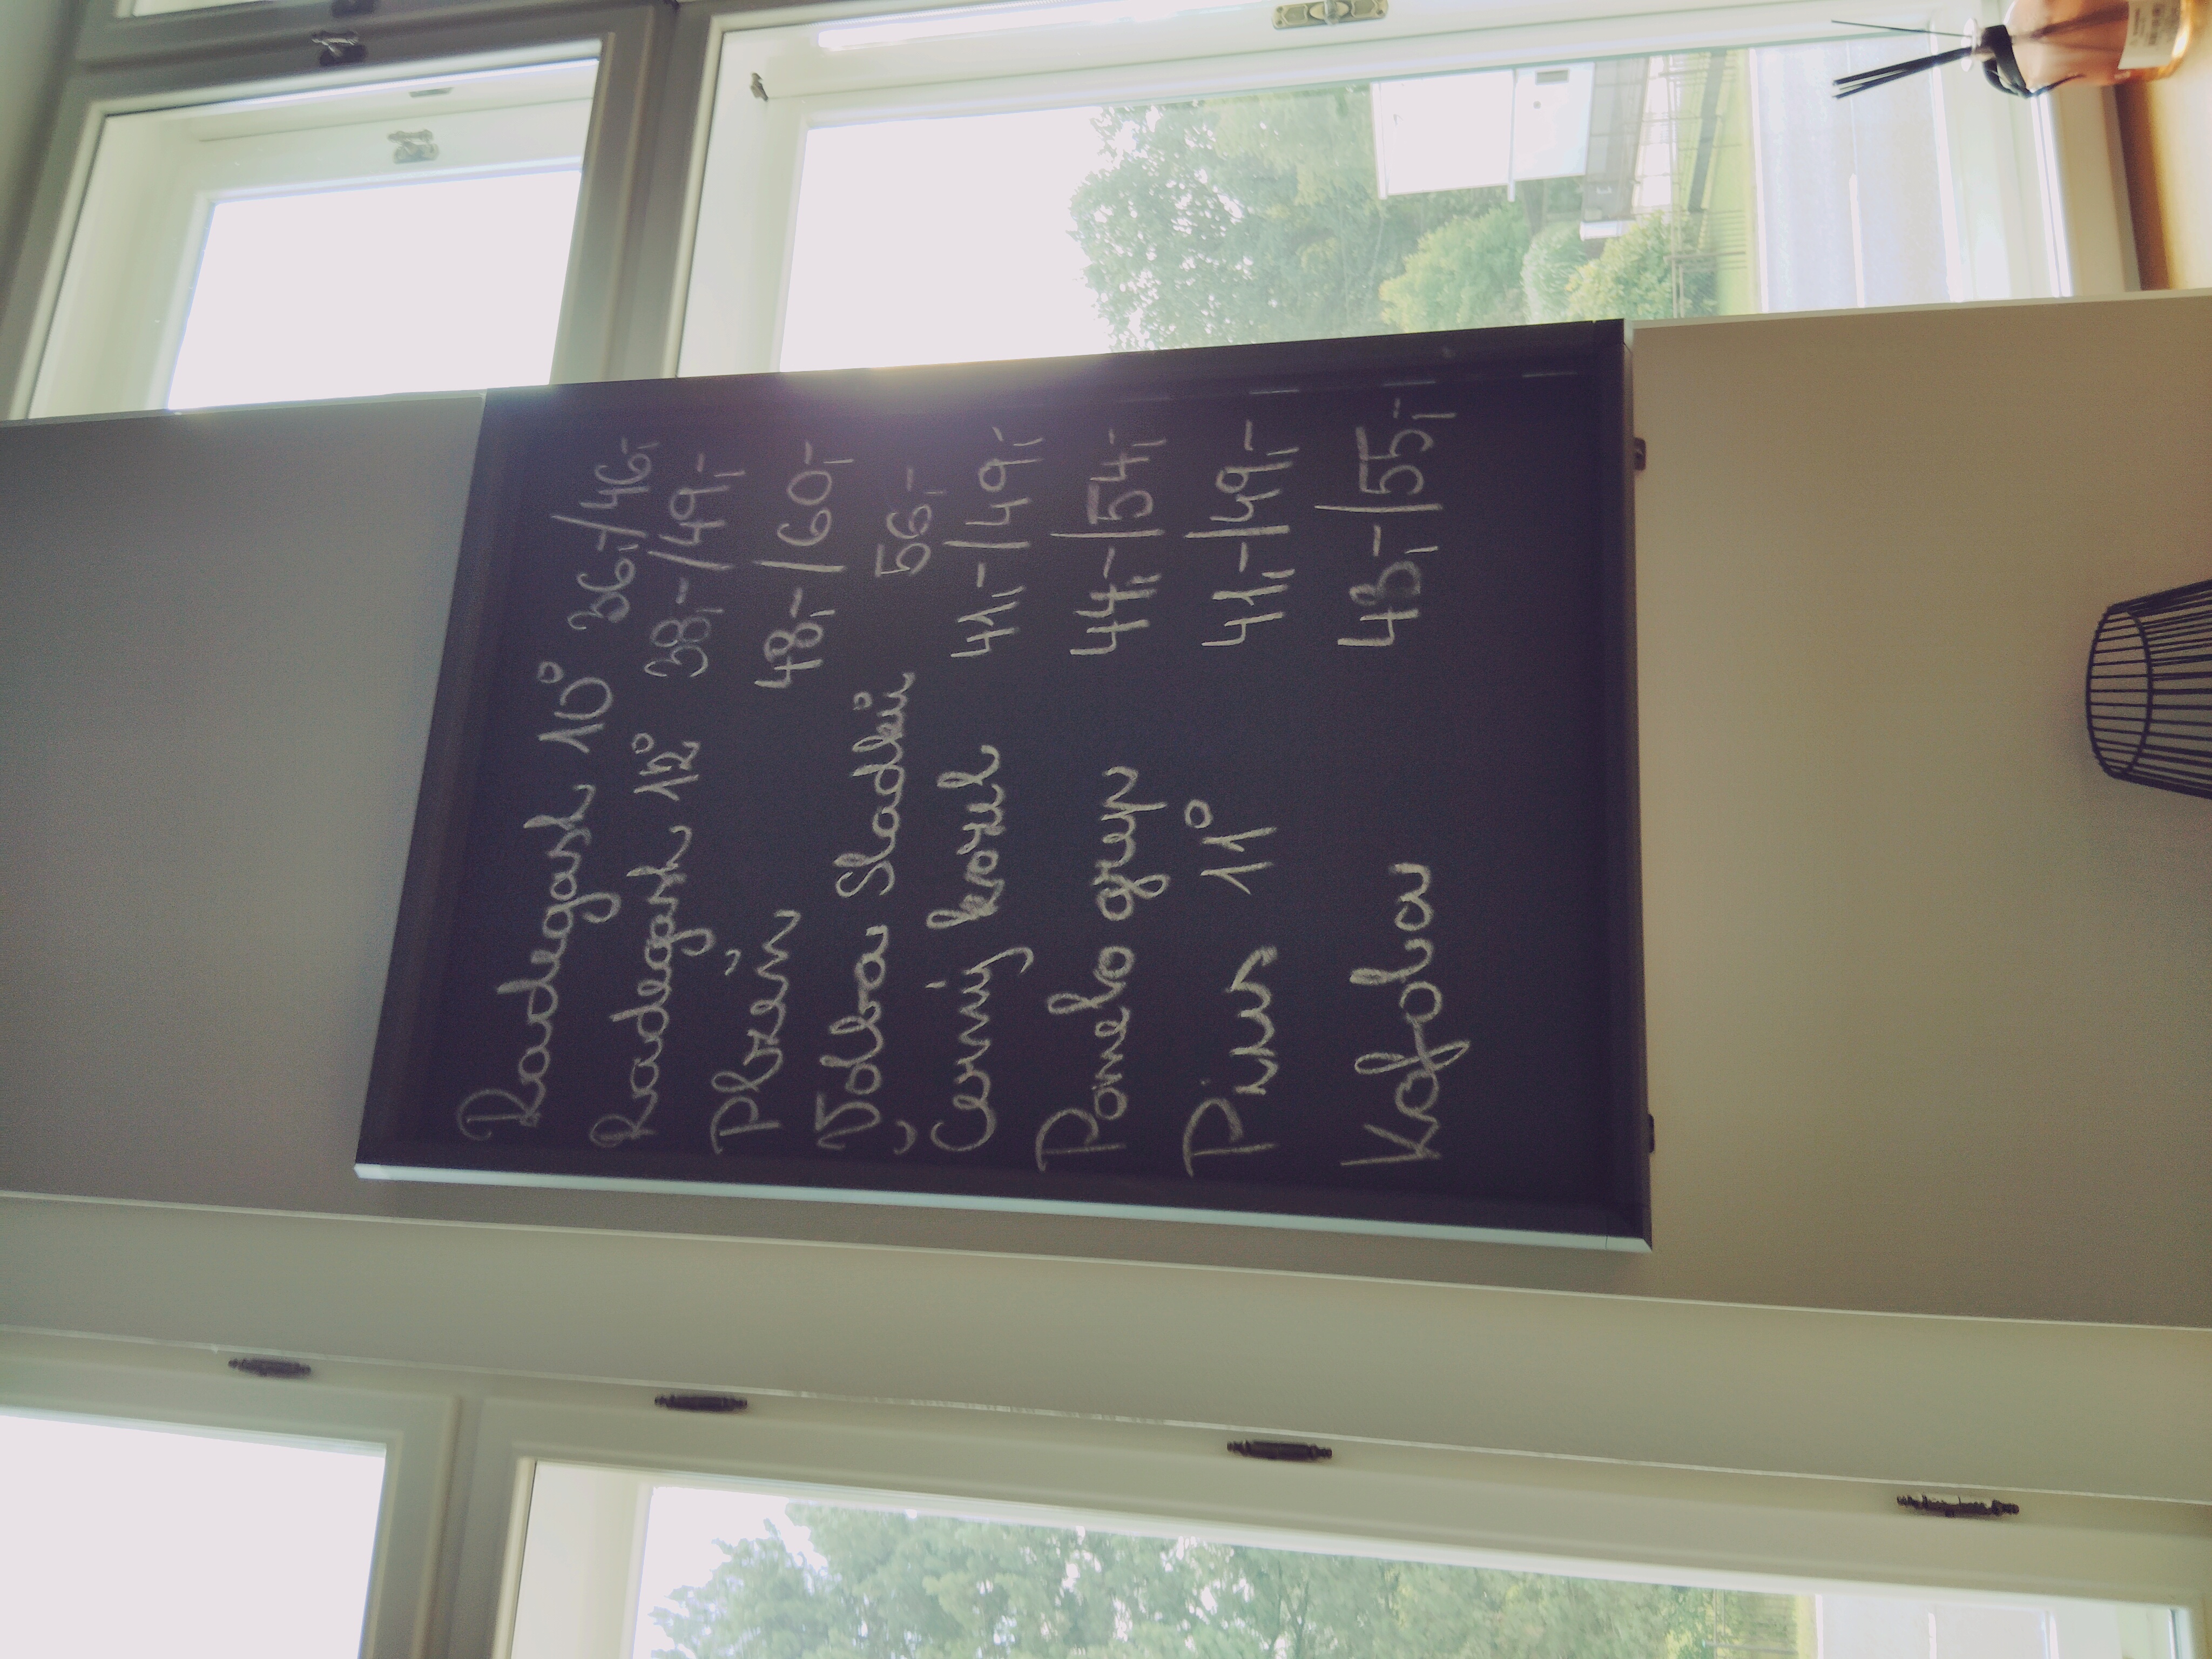 Radegast 10° 36,-/46,-
Radegast 12° 38,-/49,-
Plzeň 48,-/60,-
Volba Sládků 56,-
Černý kozel 41,-/49,-
Pomelo grep 44,-/54,-
Pirus 11° 41,-/49,-
Kofola 43,-/55,-